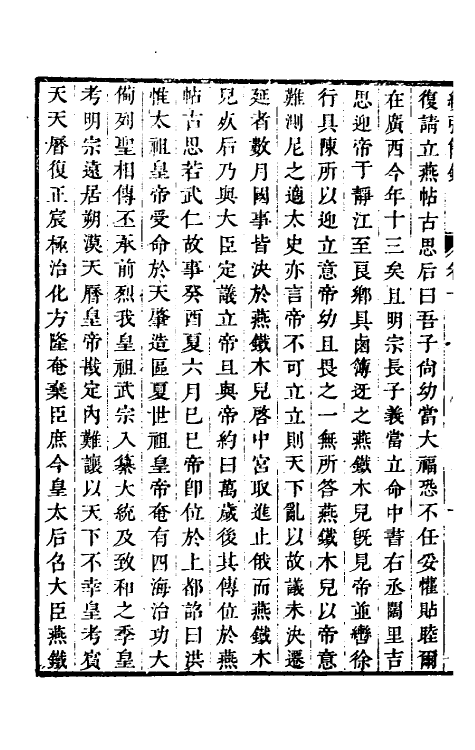 復請立燕帖古思后曰吾子尙幼當大福恐不任妥懽貼睦爾
在廣西今年十三矣且明宗長子義當立命中書右丞闊里吉
思迎帝于靜江至良鄉具鹵簿迓之燕鐵木兒旣見帝並轡徐
行具陳所以迎立意帝幼且畏之一無所答燕鐵木兒以帝意
難測尼之適太史亦言帝不可立立則天下亂以故議未決遷
延者數月國事皆決於燕鐵木兒啓中宮取進止俄而燕鐵木
兒死后乃與大臣定議立帝且與帝約曰萬歲後其傳位於燕
帖古思若武仁故事癸酉夏六月己巳帝卽位於上都詔曰洪
惟太祖皇帝受命於天肇造區夏世祖皇帝奄有四海治功大
備列聖相傳丕承前烈我皇祖武宗入纂大統及致和之季皇
考明宗遠居朔漠天曆皇帝戡定內難讓以天下不幸皇考賓
天天曆復正宸極治化方隆奄棄臣庶今皇太后召大臣燕鐵